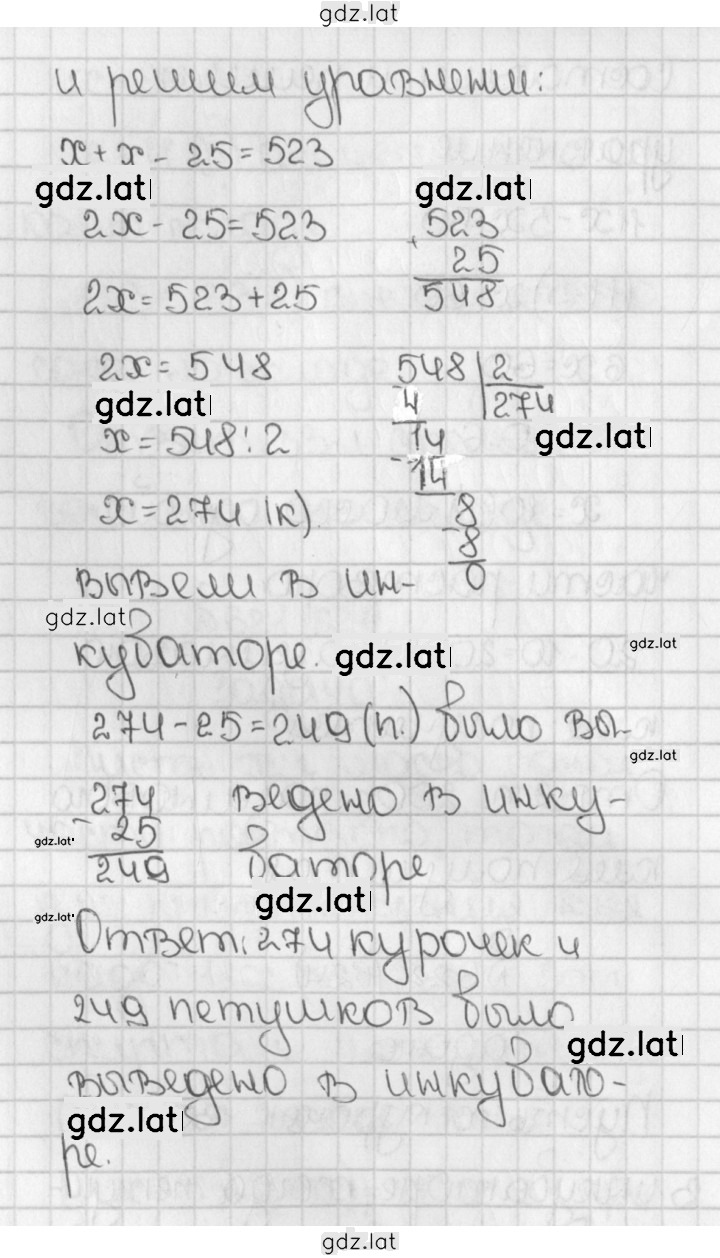 gdz.lat
и решим уравнении:
x + x - 25 = 523
gdz.lat gdz.lat
2x - 25 = 523
+ 523
25
548
2x = 523 + 25
2x = 548
548 | 2
- 4 274
14
- 14
8
- 8
0
gdz.lat gdz.lat
x = 548 : 2
x = 274 (к)
вывели в ин-
gdz.lat
кубаторе.
gdz.lat gdz.lat
274 - 25 = 249 (п.) было вы-
gdz.lat
ведено в инку-
баторе
- 274
25
249
gdz.lat
gdz.lat
gdz.lat
Ответ: 274 курочек и
249 петушков было
gdz.lat
выведено в инкубато-
gdz.lat
ре.
gdz.lat